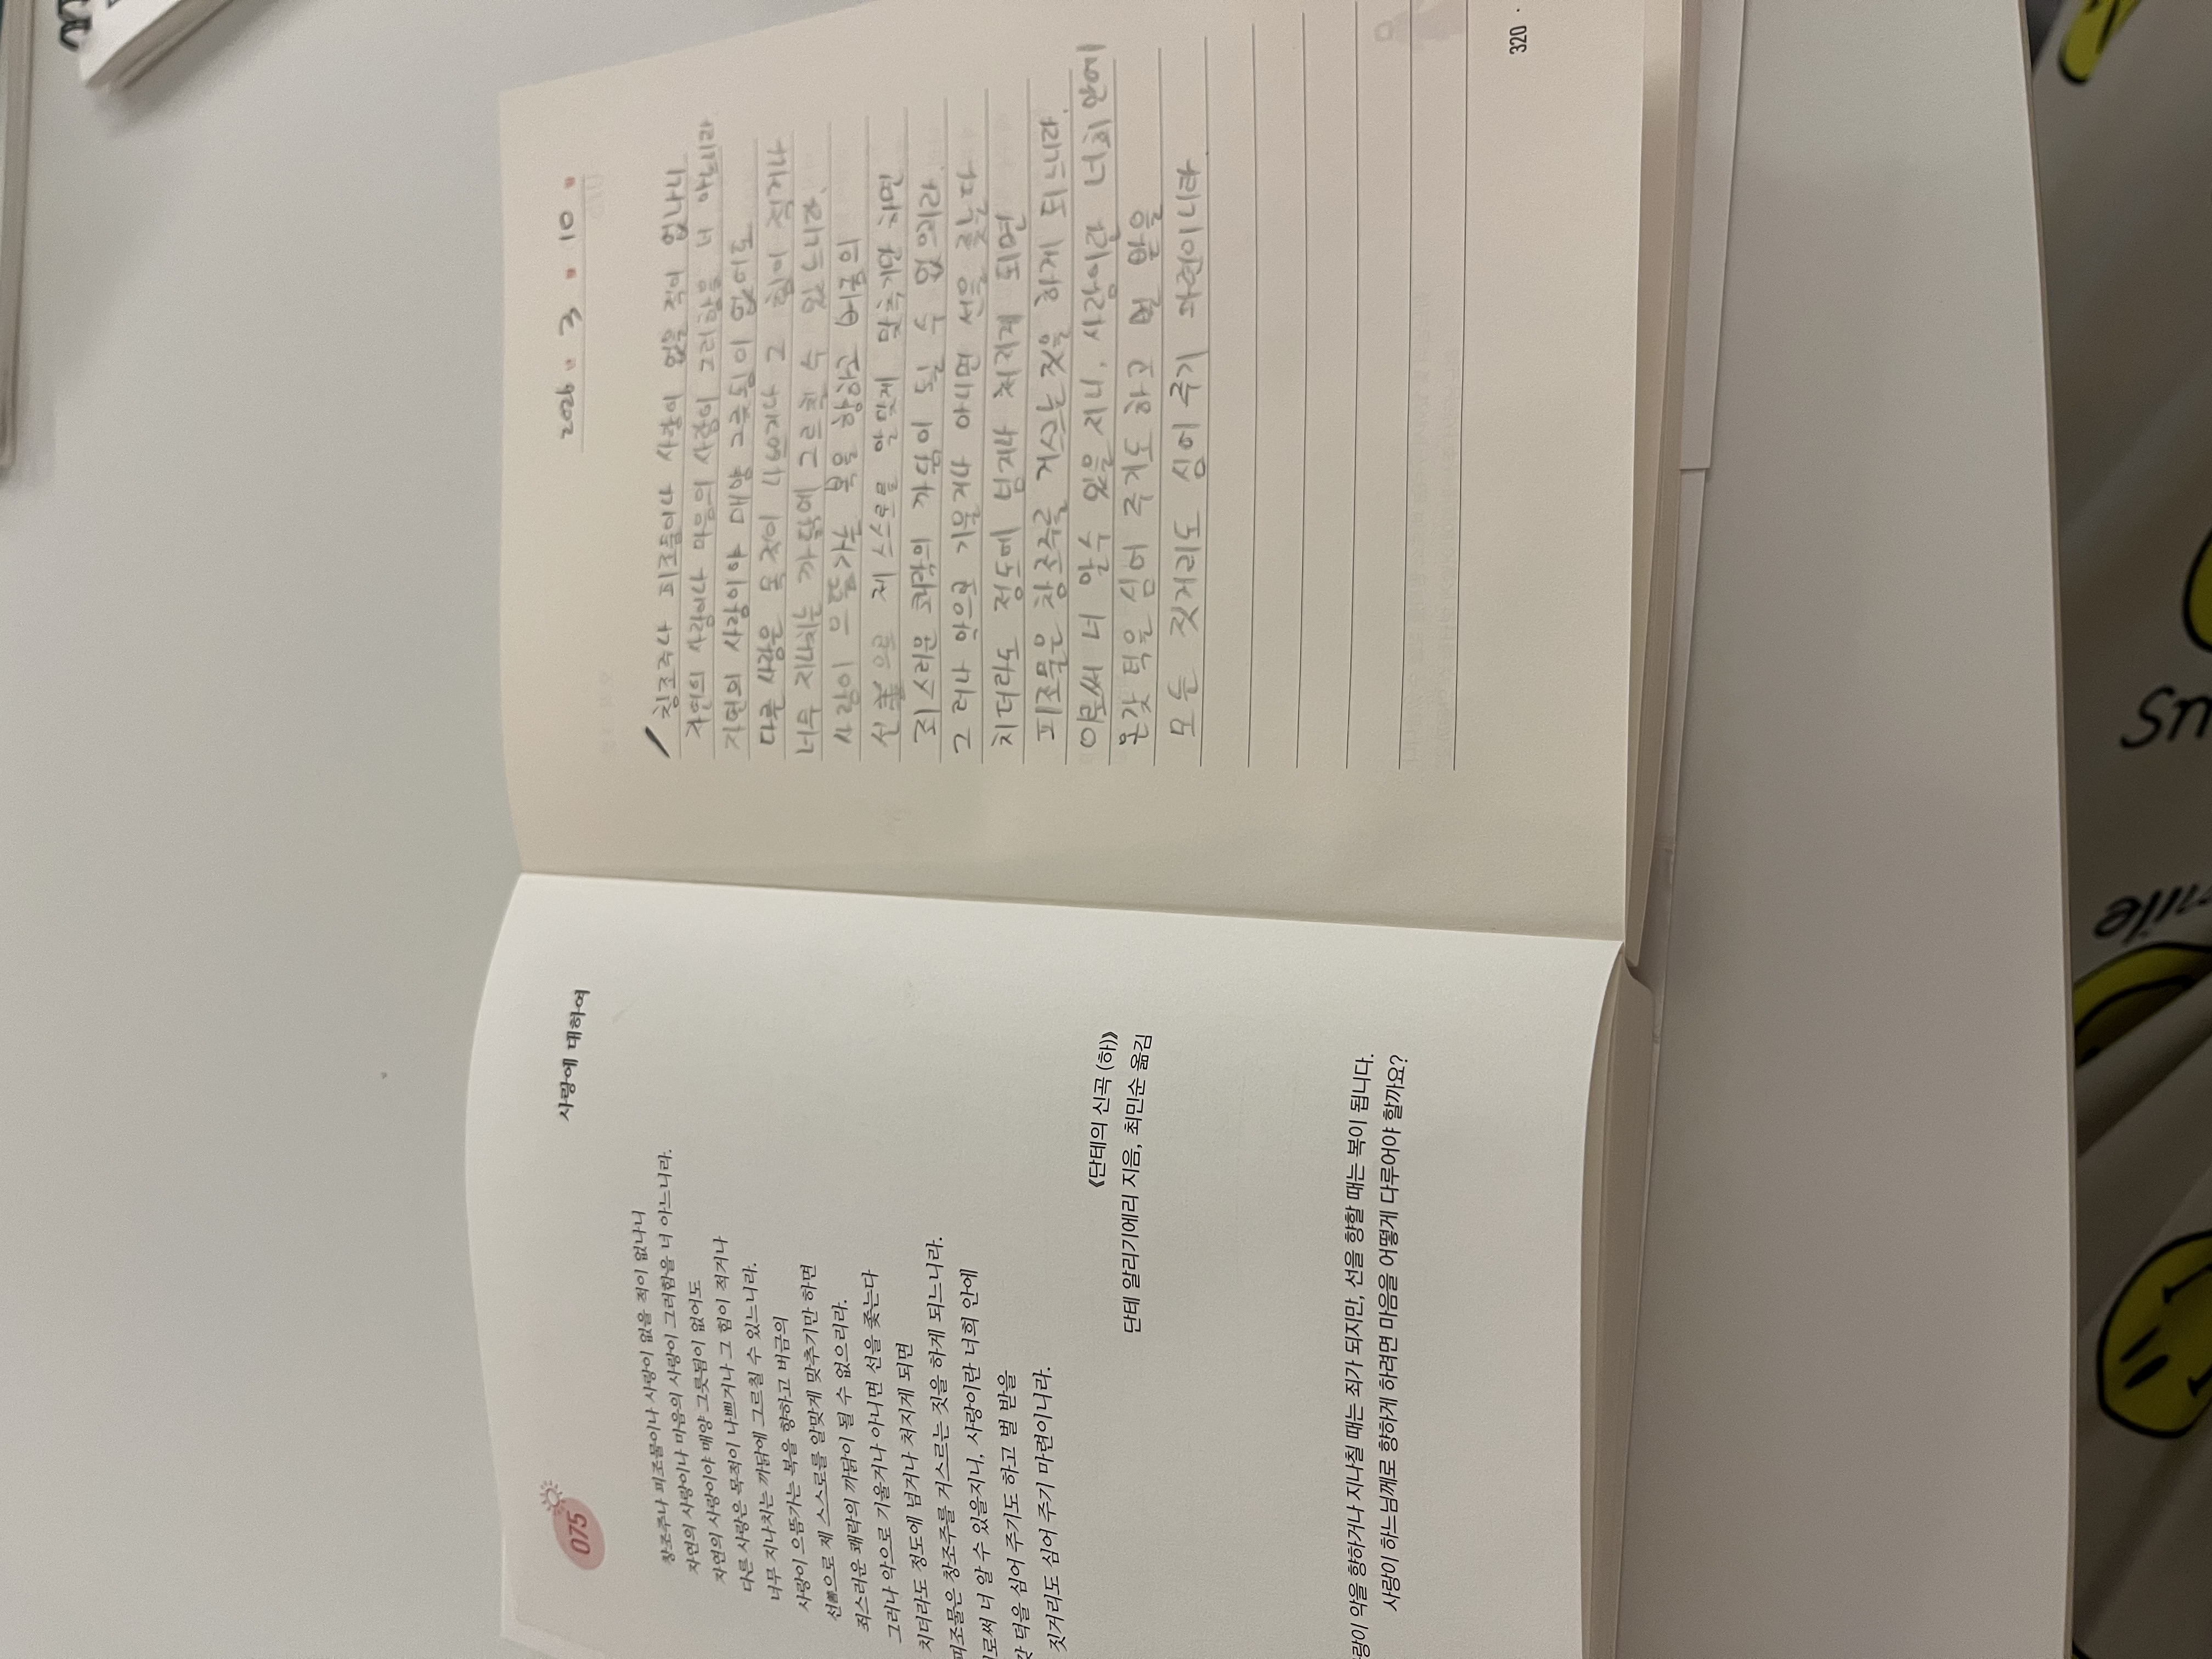 075
사랑에 대하여
창조주나 피조물이나 사랑이 없을 적이 없나니
자연의 사랑이나 마음의 사랑이 그러함을 너 아느니라.
자연의 사랑이야 매양 그릇됨이 없어도
다른 사랑은 목적이 나쁘거나 그 힘이 적거나
너무 지나치는 까닭에 그르칠 수 있느니라.
사랑이 으뜸가는 복을 향하고 버금의
선善으로 제 스스로를 알맞게 맞추기만 하면
죄스러운 쾌락의 까닭이 될 수 없으리라.
그러나 악으로 기울거나 아니면 선을 좇는다
치더라도 정도에 넘거나 처지게 되면
피조물은 창조주를 거스르는 짓을 하게 되느니라.
로써 너 알 수 있을지니, 사랑이란 너희 안에
갖 덕을 심어 주기도 하고 벌 받을
짓거리도 심어 주기 마련이니라.
《단테의 신곡 (하)》
단테 알리기에리 지음, 최민순 옮김
랑이 악을 향하거나 지나칠 때는 죄가 되지만, 선을 향할 때는 복이 됩니다.
사랑이 하느님께로 향하게 하려면 마음을 어떻게 다루어야 할까요?
2026 3 10
창조주나 피조물이나 사랑이 없을 적이 없나니
자연의 사랑이나 마음의 사랑이 그러함을 너 아느니라
자연의 사랑이야 매양 그릇됨이 없어도
다른 사랑은 목적이 나쁘거나 그 힘이 적거나
너무 지나치는 까닭에 그르칠 수 있느니라.
사랑이 으뜸가는 복을 향하고 버금의
선善으로 제 스스로를 알맞게 맞추기만 하면
죄스러운 쾌락의 까닭이 될 수 없으리라.
그러나 악으로 기울거나 아니면 선을 좇는다
치더라도 정도에 넘거나 처지게 되면
피조물은 창조주를 거스르는 짓을 하게 되느니라.
이로써 너 알 수 있을 지니, 사랑이란 너희 안에
온갖 덕을 심어 주기도 하고 벌 받을
모든 짓거리도 심어 주기 마련이니라.
320
mile